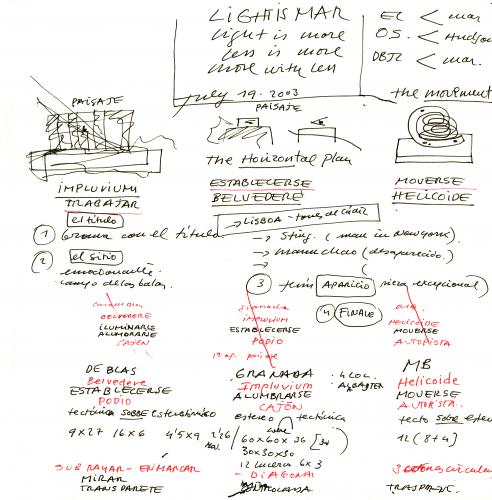 LIGHT IS MAR
light is more
less is more
more with less
july 19. 2003
EC < mar
O.S. < Hudson
DBJZ < mar.
PAISAJE
PAISAJE
the movement
the Horizontal Plan
IMPLUVIUM
TRABAJAR
ESTABLECERSE
BELVEDERE
MOVERSE
HELICOIDE
el título
1 broma con el título
→ LISBOA - torres de Cádiz
→ Sting. (man in New York).
→ manu chao (desaparecido.)
2 el sitio
emocionante
campo de las balas
3 tenis APARICIO pieza excepcional
4 FINALE
BELVEDERE
ILUMINARLE
ALUMBRARSE
CAJÓN
Granada
IMPLUVIUM
ESTABLECERSE
PODIO
HELICOIDE
MOVERSE
AUTOPISTA
DE BLAS
Belvedere
ESTABLECERSE
PODIO
tectónico SOBRE estereotómico
9x27 16x6 4'5x9 2'26
GRANADA
Impluvium
ALUMBRARSE
CAJÓN
estereo sobre tectónica
60x60x36
30x30x30
12 luceras 6x3
4 COL.
ALBASTER
MB
Helicoide
MOVERSE
AUTOPISTA
tecto sobre estereo
12 (8+4)
SUBRAYAR - ENMARCAR
MIRAR
TRANSPARETE
- DIAGONAL
3
TRASPARENC.